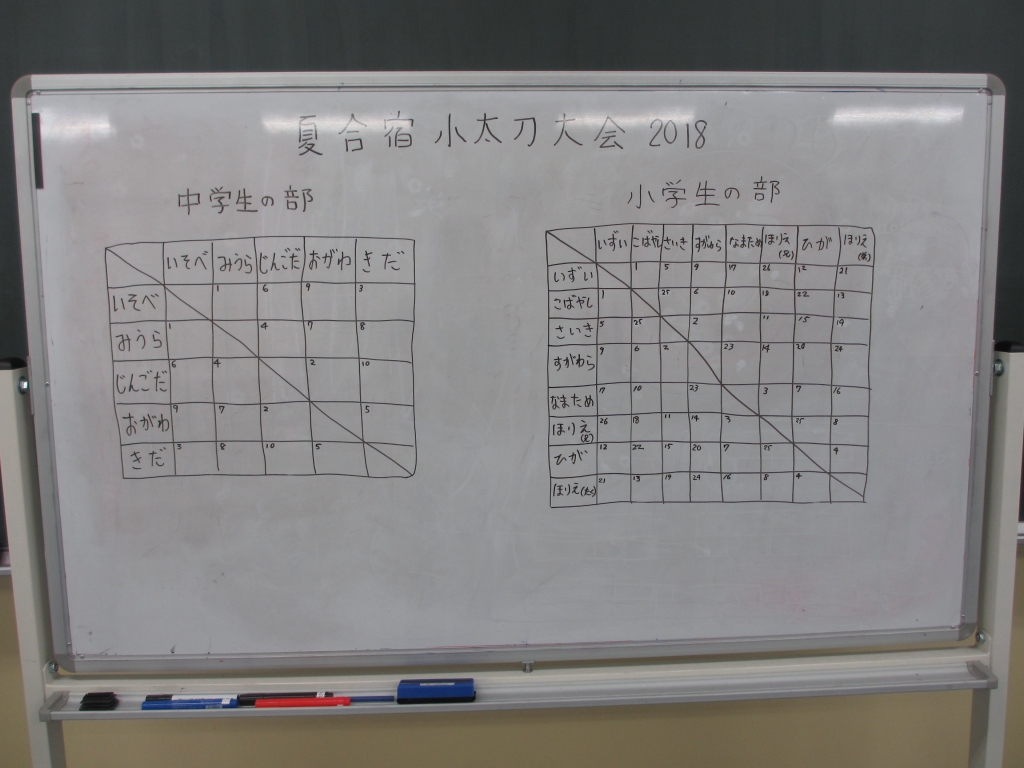 夏合宿小太刀大会 2018
中学生の部
いそべ みうら じんごだ おがわ きだ
いそべ 1 6 9 3
みうら 1 4 7 8
じんごだ 6 4 2 10
おがわ 9 7 2 5
きだ 3 8 10 5
小学生の部
いずい こばやし さいき すがわら なまため ほりえ(兄) ひが ほりえ
いずい 1 5 9 17 26 12 21
こばやし 1 25 6 10 18 22 13
さいき 5 25 2 11 15 19
すがわら 9 6 2 23 14 20 24
なまため 17 10 23 3 7 16
ほりえ(兄) 26 18 11 14 3 25 8
ひが 12 22 15 20 7 25 4
ほりえ 21 13 19 24 16 8 4